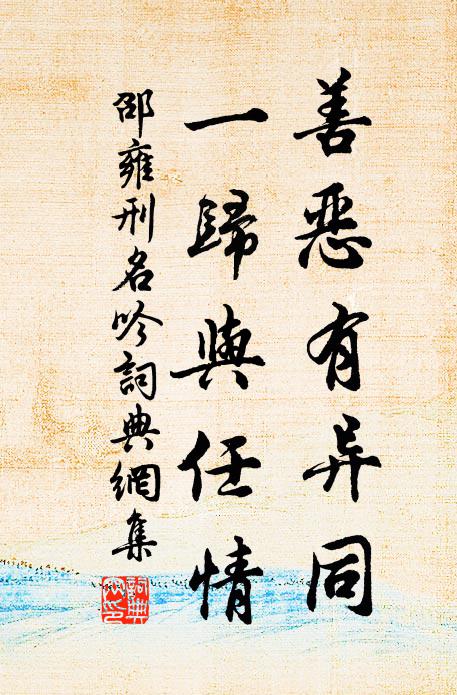 善惡有异同
一歸與任情
邵雍刑名吟詞典網集